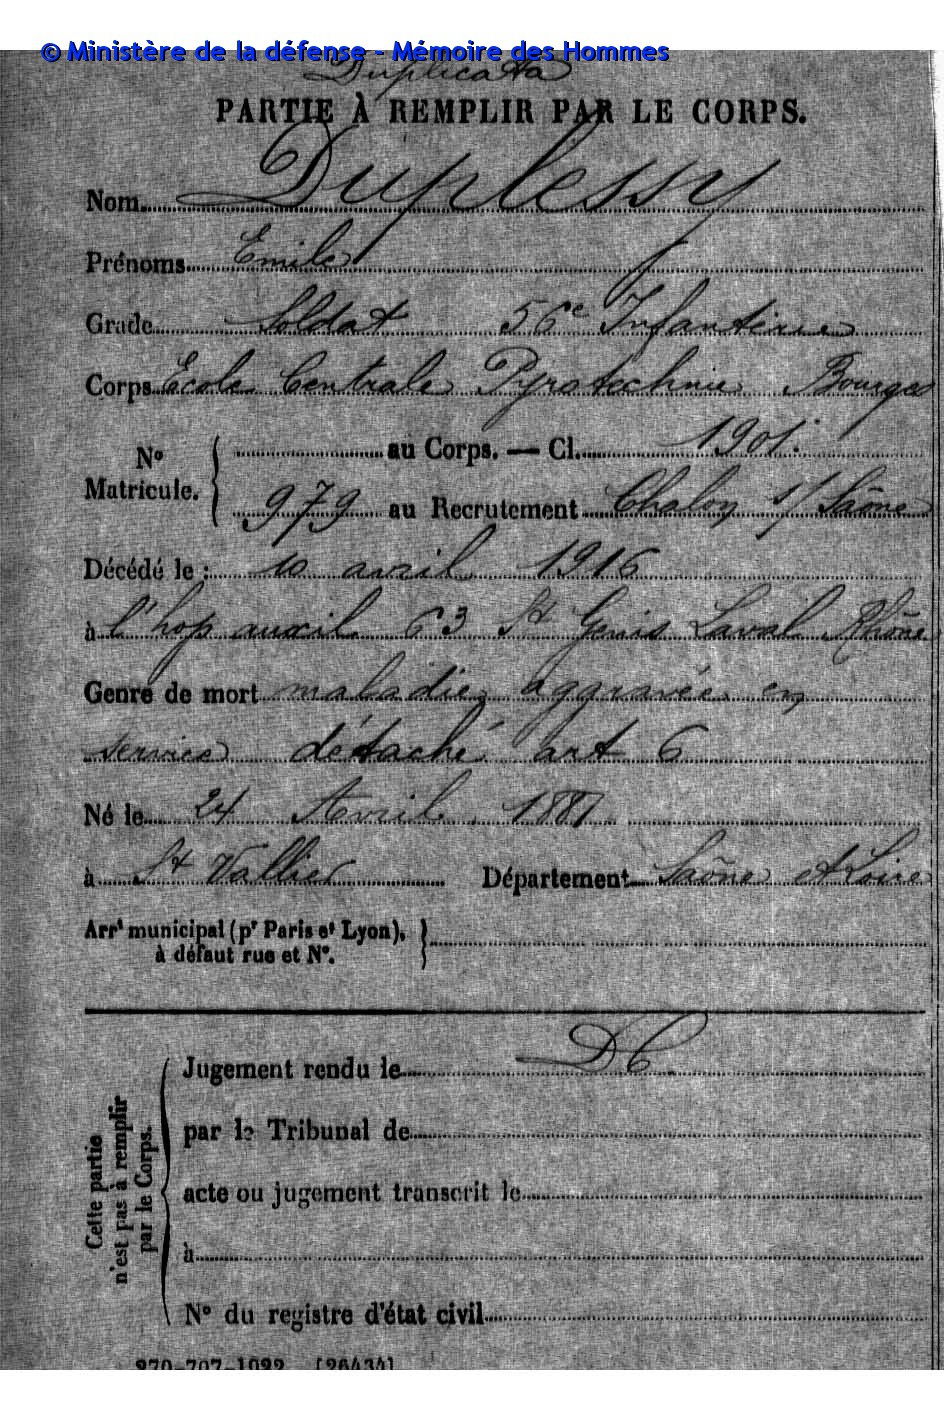 © Ministère de la défense - Mémoire des Hommes
Duplicata
PARTIE À REMPLIR PAR LE CORPS.
Nom Duplessy
Prénoms Emile
Grade Soldat 56e Infanterie
Corps Ecole Centrale Pyrotechnie Bourges
No Matricule. { au Corps. — Cl. 1901.
979 au Recrutement Chalon s/ Saône
Décédé le : 10 avril 1916
à l'hop auxil. 63 St Genis Laval Rhône
Genre de mort maladie aggravée en
service détaché art 6
Né le 24 Avril 1881
à St Vallier Département Saône et Loire
Arrt municipal (pr Paris et Lyon), }
à défaut rue et No.
DC
Jugement rendu le
par le Tribunal de
acte ou jugement transcrit le
à
No du registre d'état civil
Cette partie
n'est pas à remplir
par le Corps.
270-707-1922. [26434]